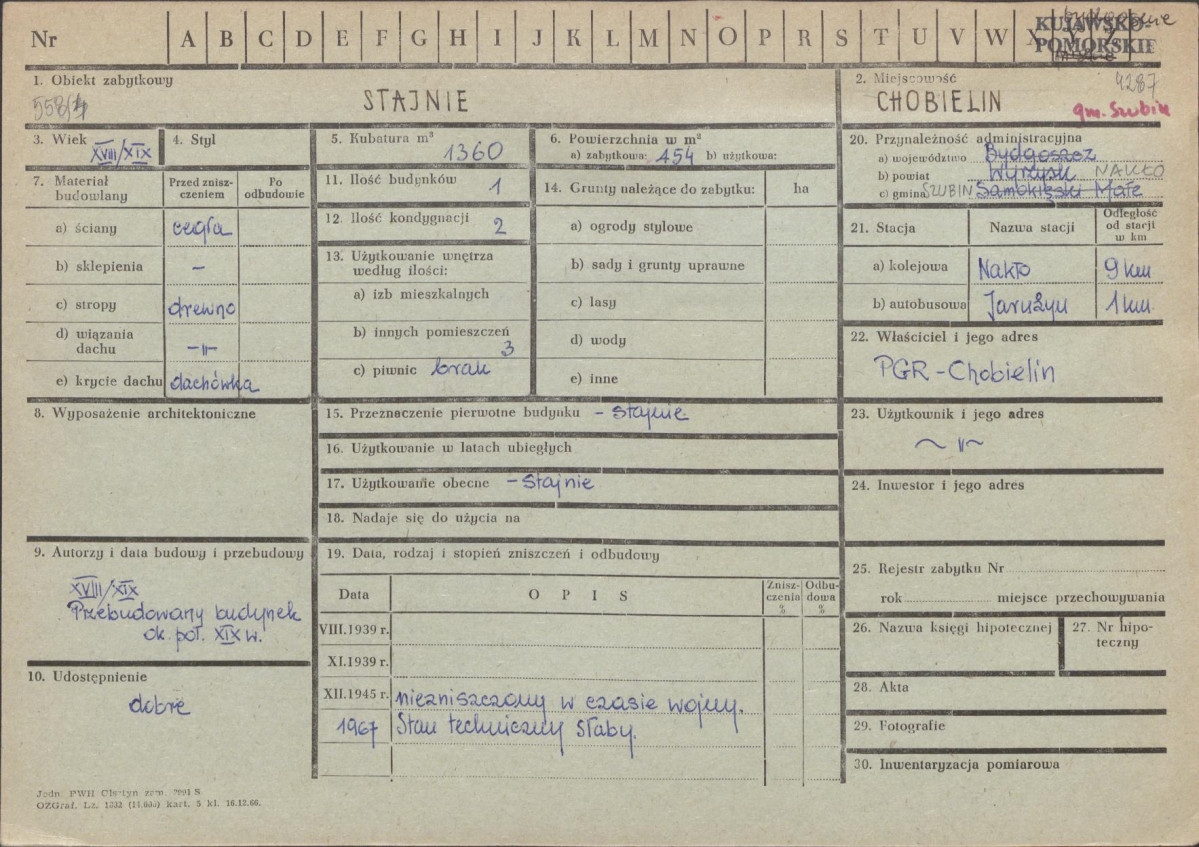 Nr A B C D E F G H I J K L M N O P R S T U V W X Y Z
KUJAWSKO-
POMORSKIE
1. Obiekt zabytkowy
STAJNIE
2. Miejscowość
4287
CHOBIELIN
gm. Szubin
3. Wiek XVIII/XIX
4. Styl
5. Kubatura m³
1360
6. Powierzchnia w m²
a) zabytkowa: 454 b) użytkowa:
7. Materiał budowlany
Przed zniszczeniem
Po odbudowie
a) ściany cegła
b) sklepienia –
c) stropy drewno
d) wiązania dachu –"–
e) krycie dachu dachówka
8. Wyposażenie architektoniczne
9. Autorzy i data budowy i przebudowy
XVIII/XIX
Przebudowany budynek
ok. poł. XIX w.
10. Udostępnienie
dobre
11. Ilość budynków 1
12. Ilość kondygnacji 2
13. Użytkowanie wnętrza
według ilości:
a) izb mieszkalnych
b) innych pomieszczeń 3
c) piwnic brak
14. Grunty należące do zabytku: ha
a) ogrody stylowe
b) sady i grunty uprawne
c) lasy
d) wody
e) inne
15. Przeznaczenie pierwotne budynku – stajnie
16. Użytkowanie w latach ubiegłych
17. Użytkowanie obecne – stajnie
18. Nadaje się do użycia na
19. Data, rodzaj i stopień zniszczeń i odbudowy
Data OPIS Zniszczenia % Odbudowa %
VIII.1939 r.
XI.1939 r.
XII.1945 r. niezniszczony w czasie wojny.
1967 Stan techniczny słaby.
20. Przynależność administracyjna
a) województwo Bydgoszcz
b) powiat Wyrzysk NAKŁO
c) gmina SZUBIN Małe
21. Stacja
Nazwa stacji
Odległość od stacji w km
a) kolejowa Nakło 9 km
b) autobusowa Jarużyn 1 km
22. Właściciel i jego adres
PGR - Chobielin
23. Użytkownik i jego adres
~ " ~
24. Inwestor i jego adres
25. Rejestr zabytku Nr
rok miejsce przechowywania
26. Nazwa księgi hipotecznej
27. Nr hipoteczny
28. Akta
29. Fotografie
30. Inwentaryzacja pomiarowa
Jedn. PWH Olsztyn zam. 2991 S
OZGraf. Lz. 1332 (14.000) kart. 5 kl. 16.12.66.